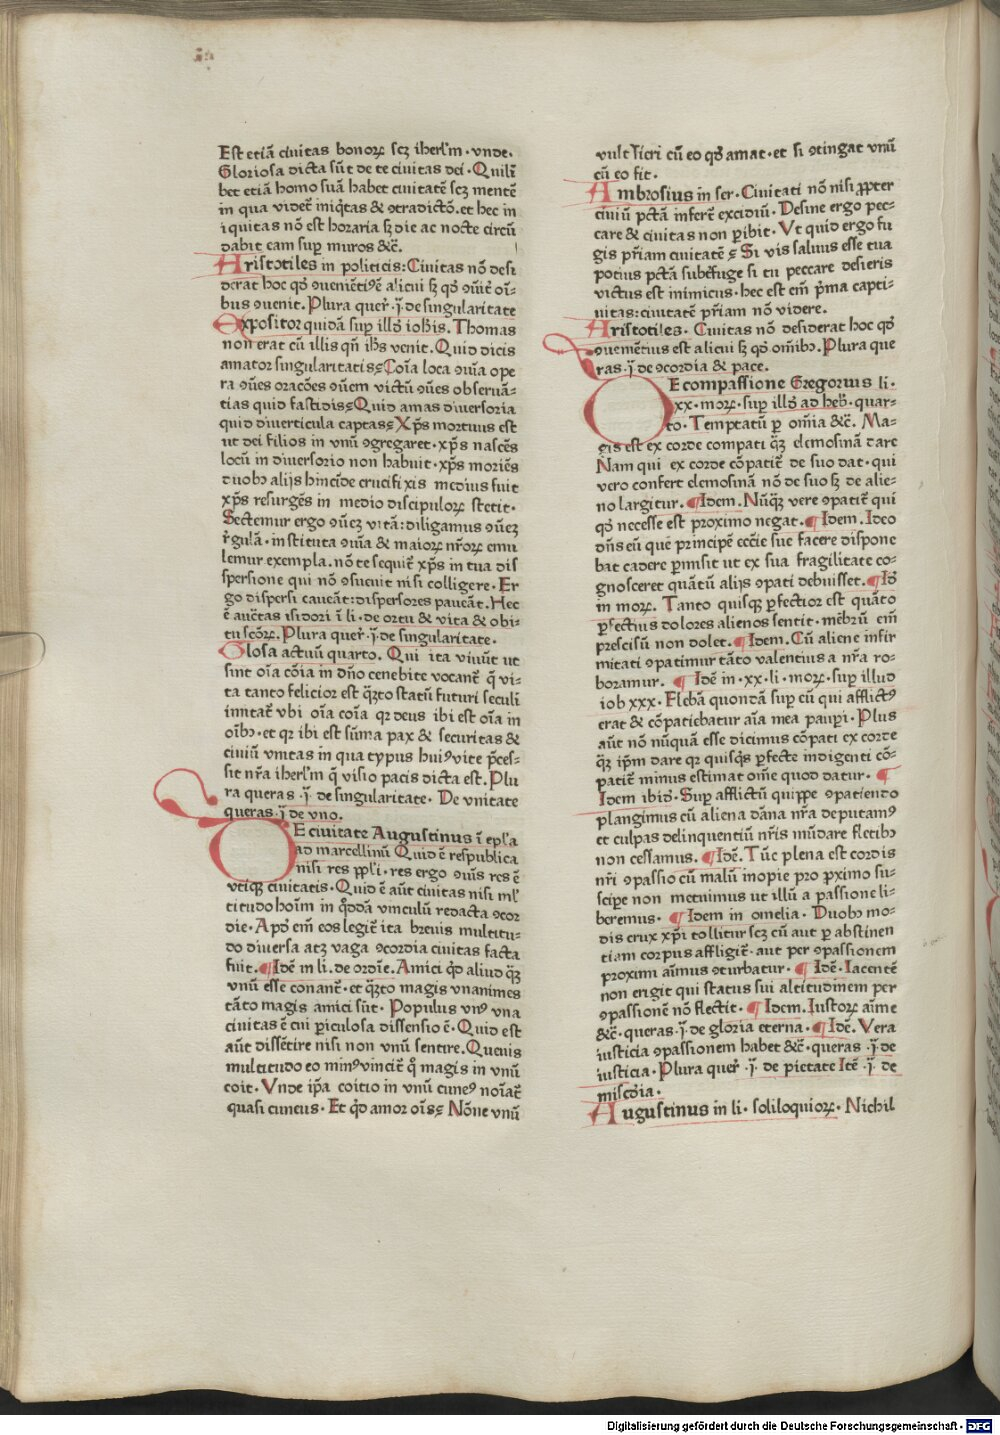 Est etiā ciuitas bonoꝝ scꝫ iherl̄m · vnde.
Gloriosa dicta sūt de te ciuitas dei · Quilī
bet etiā homo suā habet ciuitatē scꝫ mentē
in qua videt̄ iniq̄tas & ꝯtradictō. et hec in
iquitas nō est horaria sꝫ die ac nocte circū
dabit eam suꝑ muros &c̄.
Aristotiles in politicis: Ciuitas nō desi
derat hoc qd̓ ꝯueniēti9ē alicui sꝫ qd̓ ꝯ̄ite oī-
bus ꝯuenit. Plura quer̄ · j̄ · de singularitate
Expositor quidā suꝑ illd̓ ioħis. Thomas
non erat cū illis qn̄ iħs venit. Quid dicis
amator singularitatis⸗ Coīa loca ꝯuia ope
ra ꝯūes oracōes ꝯuem victū ꝯūes obseruā-
tias quid fastidis⸗ Quid amas diuersoria
quid diuerticula captas⸗ Xp̄s mortuus est
ut dei filios in vnū ꝯgregaret · xp̄s nascēs
locū in diuersorio non habuit · xp̄s moriēs
duobꝫ alijs hincide crucifixis medius fuit
xp̄s resurgēs in medio discipuloꝝ stetit ·
Sectemur ergo ꝯuēꝫ vitā: diligamus ꝯuēꝫ
r̄gulā · instituta ꝯuia & maioꝝ nr̄oꝝ emu
lemur exempla. nō te sequit̄ xp̄s in tua dis
spersione qui nō ꝯsueuit nisi colligere · Er
go dispersi caueāt: dispersores paueāt. Hec
ē auct̄as isidori ī li · de ortu & vita & obi-
tu scōꝝ. Plura quer̄ · j̄ · de singularitate.
Glosa actuū quarto. Qui ita viuūt ut
sint oīa cōia in dn̄o cenobite vocant̄ q̄ vi-
ta tanto felicior est q̄ꝫto statū futuri seculī
imitat̄ vbi oīa coīa qꝛ deus ibi est oīa in
oībꝫ · et qꝛ ibi est sūma pax & securitas &
ciuiū vnitas in qua typus hui9vite p̄ces-
sit nr̄a iherl̄m q̄ visio pacis dicta est. Plu
ra queras · j̄ · de singularitate · De vnitate
queras · j̄ de vno.
DE ciuitate Augustinus ī epl̄a
ad marcellinū Quid ē respublica
nisi res ppl̄i · res ergo ꝯuīs res ē
vtiqꝫ ciuitatis · Quid ē aūt ciuitas nisi ml̄
titudo hoīm in q̄ddā vinculū redacta ꝯcor
die · Apd̓ em̄ eos legit̄ ita breuis multitu-
do diuersa atqꝫ vaga ꝯcordia ciuitas facta
fuit. ¶Idē in li. de ordīe. Amici qd̓ aliud q̄ꝫ
vnū esse conant̄ · et q̄ꝫto magis vnanimes
tāto magis amici sūt · Populus vn9 vna
ciuitas ē cui ꝑiculosa dissensio ē · Quid est
aūt dissētire nisi non vnū sentire. Queuis
multitudo eo min9vincit̄ q̄ magis in vnū
coit · Vnde ip̄a coitio in vnū cune9 noīat̄
quasi cuneus · Et qd̓ amor oīs⸗ Nōne vnū
vult fieri cū eo qd̓ amat · et si ꝯtingat vnū
cū eo fit ·
Ambrosius in ser · Ciuitati nō nisi ꝓpter
ciuiū pctā infert̄ excidiū. Desine ergo pec-
care & ciuitas non ꝑibit · Vt quid ergo fu
gis pr̄iam ciuitatē⸗ Si vis saluus esse tua
potius pctā subt̄fuge si tu peccare desieris
victus est inimicus · hec est em̄ p̄ma capti-
uitas: ciuitatē pr̄iam nō videre.
Aristotiles. Ciuitas nō desiderat hoc qd̓
ꝯueniētius est alicui sꝫ qd̓ om̄ibꝫ. Plura que
ras · j̄ de ꝯcordia & pace.
DE compassione Gregorius li ·
xx · moꝝ · suꝑ illd̓ ad heb̓ · quar-
to · Temptatū ꝑ om̄ia &c̄. Ma-
gis est ex corde compati q̄ꝫ elemosinā dare
Nam qui ex corde cōpatit̄ de suo dat · qui
vero confert elemosinā nō de suo sꝫ de alie-
no largitur. ¶Idem. Nūqꝫ vere ꝯpatit̄ qui
qd̓ necesse est proximo negat. ¶Idem. Ideo
dn̄s eū quē principē eccl̄ie sue facere dispone
bat cadere ꝑmisit ut ex sua fragilitate co-
gnosceret quātū alijs ꝯpati debuisset. ¶Id̓
in moꝝ. Tanto quisqꝫ ꝑfectior est quāto
ꝑfectius dolores alienos sentit · mēbrū em̄
prescisū non dolet. ¶Idem. Cū aliene infir
mitati ꝯpatimur tāto valentius a nr̄a ro-
boramur. ¶Idē in · xx · li · moꝝ · suꝑ illud
iob xxx · Flebā quondā suꝑ eū qui afflict9
erat & cōpatiebatur aīa mea pauꝑi · Plus
aūt nō nūquā esse dicimus cōpati ex corde
q̄ꝫ ip̄m dare qꝛ quisqs ꝑfecte indigenti cō-
patit̄ minus estimat om̄e quod datur. ¶
Idem ibid̓. Suꝑ afflictū quippe ꝯpatiendo
plangimus cū aliena dāna nr̄a deputam9
et culpas delinquentiū nr̄is mūdare fletibꝫ
non cessamus. ¶Idē. Tūc plena est cordis
nr̄i ꝯpassio cū malū inopie pro ꝓximo su-
scipe non metuimus ut illū a passione li-
beremus. ¶Idem in omelia · Duobꝫ mo-
dis crux xp̄i tollitur scꝫ cū aut ꝑ abstinen
tiam corpus affligit̄ · aut per ꝯpassionem
proximi aīmus ꝯturbatur · ¶Idē. Iacentē
non erigit qui status sui altitudinem per
ꝯpassionē nō flectit · ¶Idem. Iustoꝝ aīme
&c̄ · queras · j̄ · de gloria eterna · ¶Idē. Vera
iusticia ꝯpassionem habet &c̄ · queras · j̄ · de
iusticia · Plura quer̄ · j̄ · de pietate Itē · j̄ · de
misc̄dia ·
Augustinus in li · soliloquioꝝ · Nichil
Digitalisierung gefördert durch die Deutsche Forschungsgemeinschaft - DFG